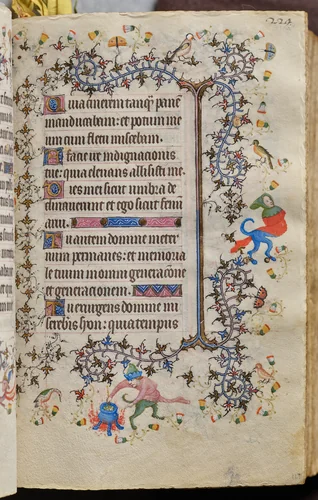 Quia cinerem tanq̃ panē
manducabam: et potum me
um cum fletu miscebam.
A facie ire indignacionis
tue: quia elevans allisisti me.
Dies mei sicut umbra de
clinaverunt et ego sicut fenum
arui.
Tu autem domine in eter
num permanes: et memoria
le tuum in omni generacōne
et generacionem.
Tu exurgens domine mi
sereberis syon: quia tempus